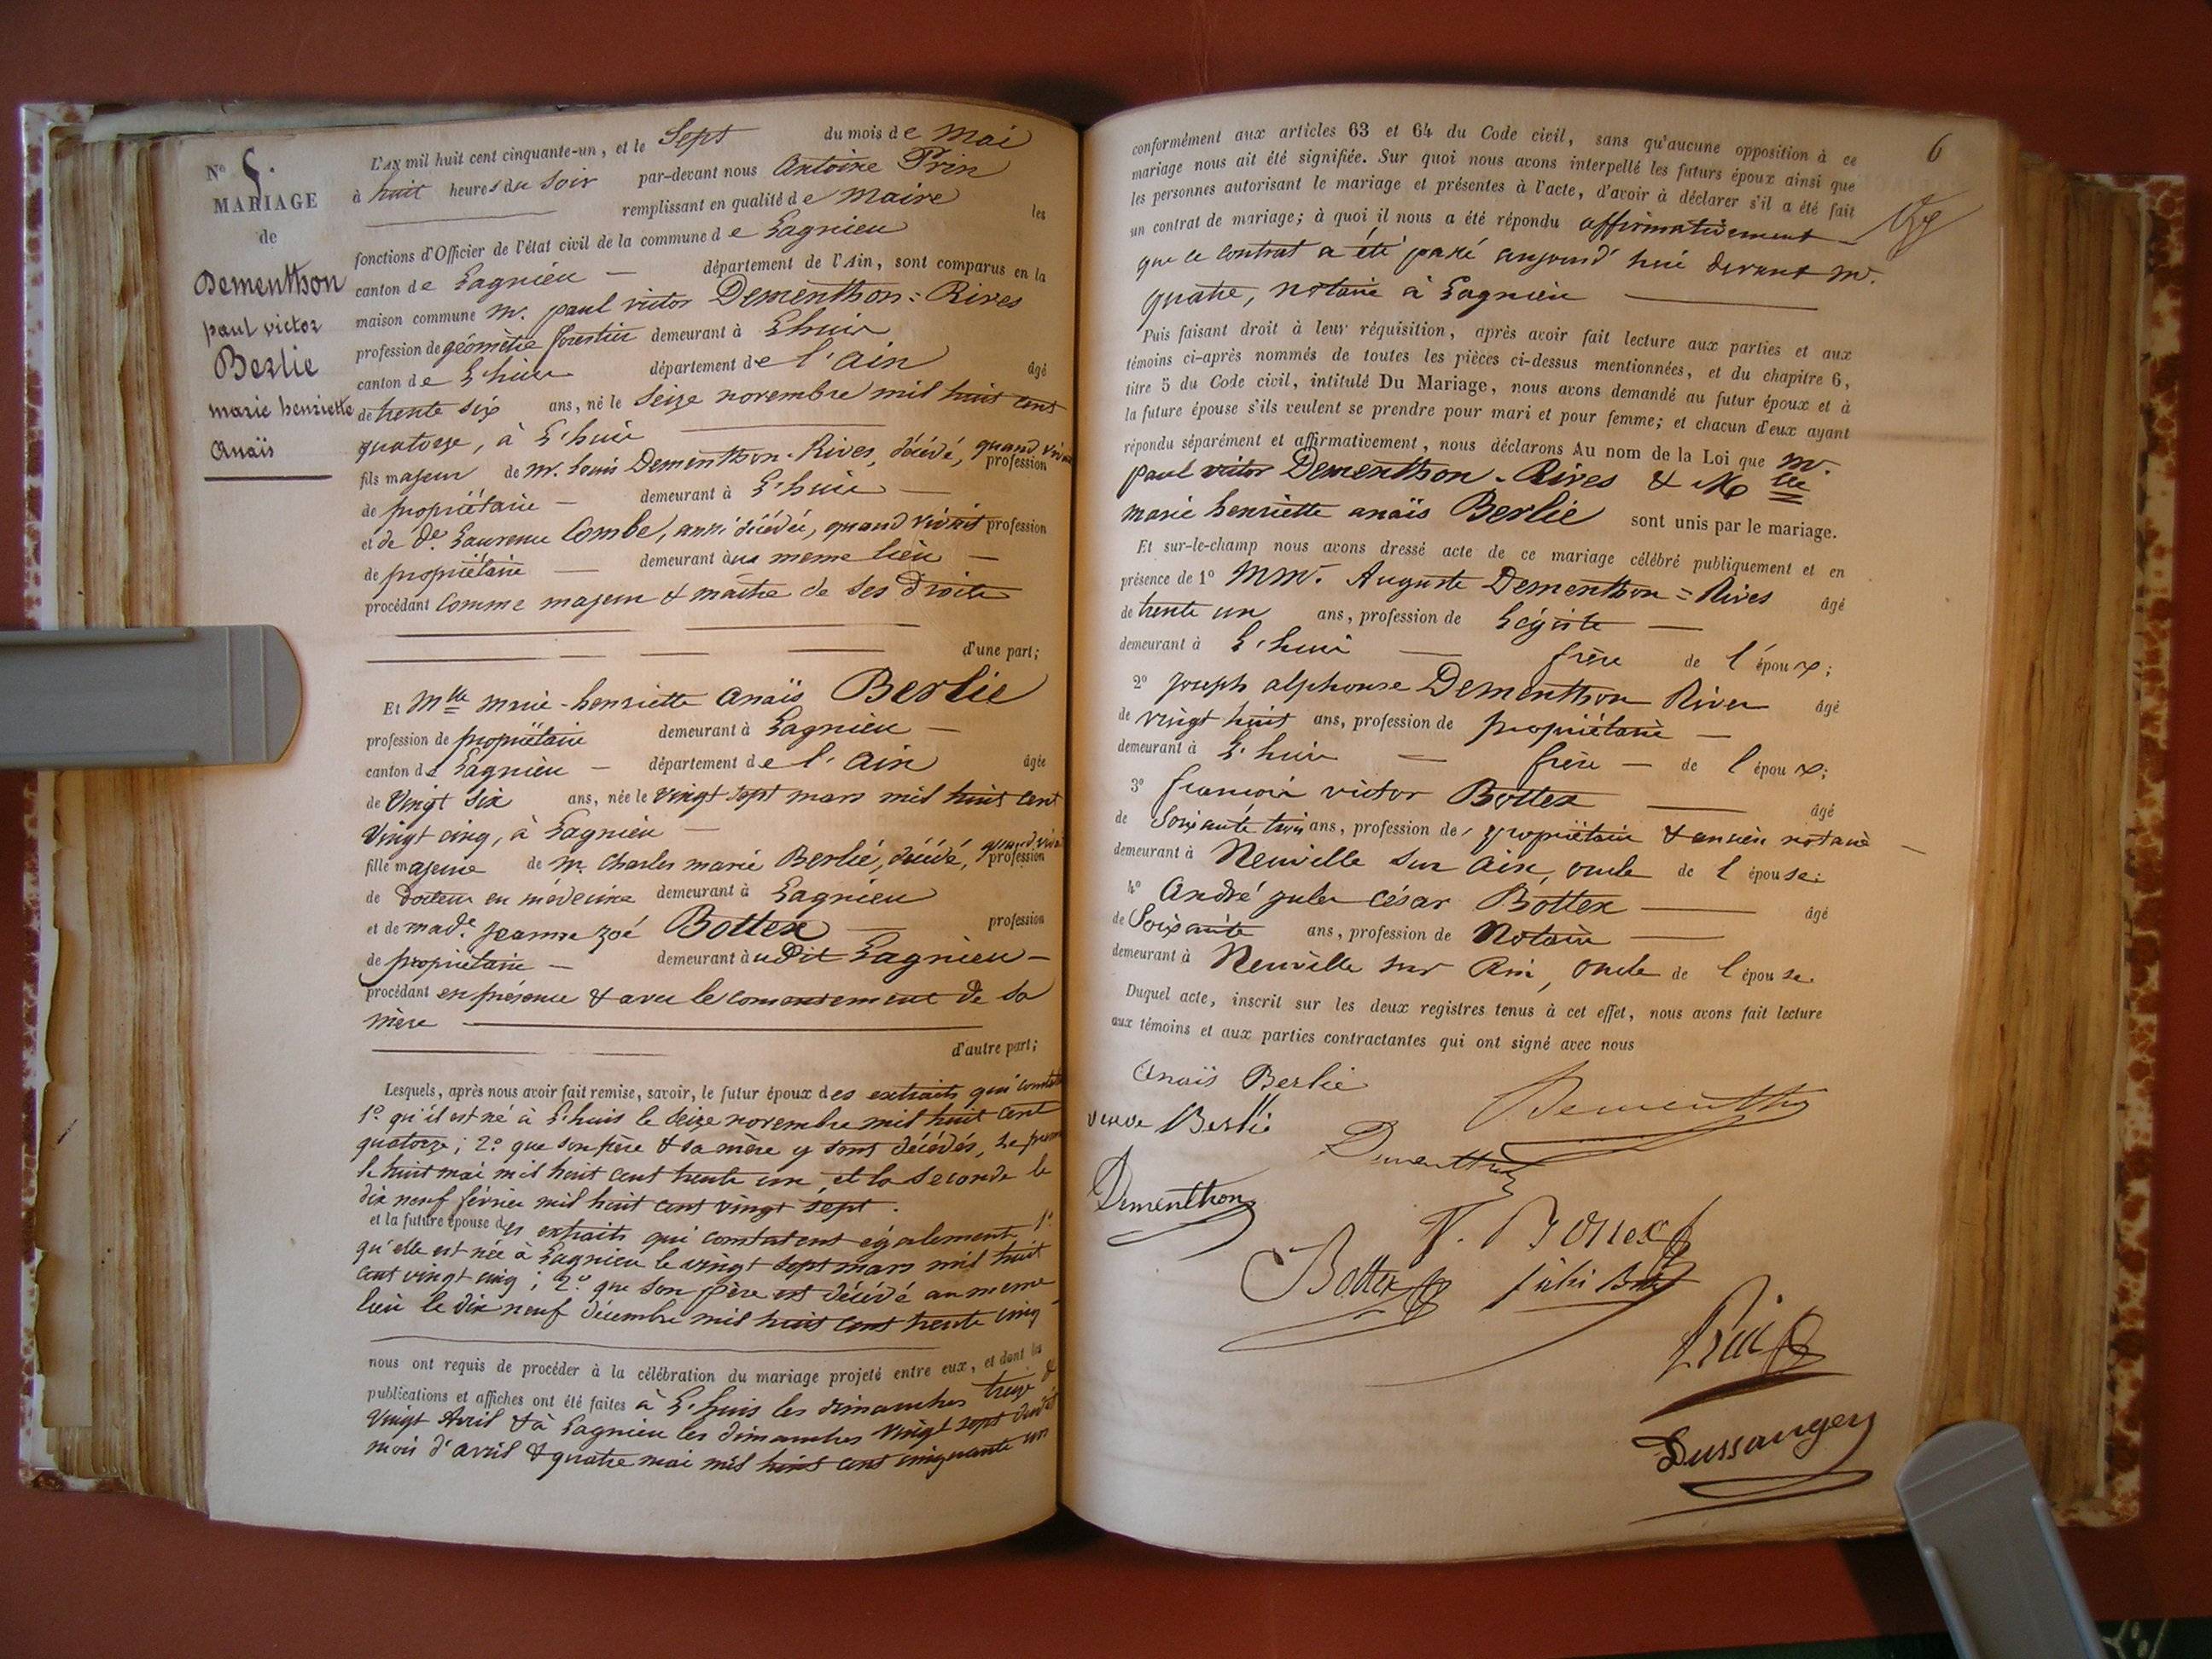 N° 5.
MARIAGE
de
Dementhon
paul victor
Berlie
marie henriette
Anaïs
L'AN mil huit cent cinquante-un, et le Sept du mois de Mai
à huit heures du Soir par-devant nous Antoine Prin
remplissant en qualité de Maire les
fonctions d'Officier de l'état civil de la commune de Lagnieu
canton de Lagnieu département de l'Ain, sont comparus en la
maison commune M. paul victor Dementhon=Rives
profession de géomètre forestier demeurant à Lhuis
canton de L'huis département de l'Ain âgé
de trente six ans, né le Seize novembre mil huit cent
quatorze, à L'huis
fils majeur de Mr. Louis Dementhon-Rives, décédé, quand vivait profession
de propriétaire demeurant à L'huis
et de De. Laurence Combe, aussi décédée, quand vivait profession
de propriétaire demeurant au meme lieu
procédant comme majeur & maître de ses Droits
d'une part;
Et Mlle marie-henriette Anaïs Berlie
profession de propriétaire demeurant à Lagnieu
canton de Lagnieu département de l'Ain âgée
de Vingt six ans, née le Vingt sept mars mil huit cent
Vingt cinq, à Lagnieu
fille majeure de Mr. Charles marie Berlié, décédé, quand vivait profession
de docteur en médecine demeurant à Lagnieu
et de made. jeanne zoé Bottex profession
de propriétaire demeurant au dit Lagnieu
procédant en présence & avec le consentement de sa
mère
d'autre part;
Lesquels, après nous avoir fait remise, savoir, le futur époux des extraits qui constatent
1° qu'il est né à L'huis le Seize novembre mil huit cent
quatorze; 2° que son père & sa mère y sont décédés, le premier
le huit mai mil huit cent trente un, et la seconde le
dix neuf février mil huit cent vingt sept.
et la future épouse des extraits qui constatent également 1°
qu'elle est née à Lagnieu le vingt sept mars mil huit
cent vingt cinq; 2° que son père est décédé au meme
lieu le dix neuf décembre mil huit cent trente cinq
nous ont requis de procéder à la célébration du mariage projeté entre eux, et dont les
publications et affiches ont été faites à L'huis les dimanches treize &
Vingt Avril & à Lagnieu les dimanches Vingt sept dudit
mois d'avril & quatre mai mil huit cent cinquante un
6
conformément aux articles 63 et 64 du Code civil, sans qu'aucune opposition à ce
mariage nous ait été signifiée. Sur quoi nous avons interpellé les futurs époux ainsi que
les personnes autorisant le mariage et présentes à l'acte, d'avoir à déclarer s'il a été fait
un contrat de mariage; à quoi il nous a été répondu affirmativement
que ce contrat a été passé aujourd'hui devant Me.
quatre, notaire à Lagnieu
Puis faisant droit à leur réquisition, après avoir fait lecture aux parties et aux
témoins ci-après nommés de toutes les pièces ci-dessus mentionnées, et du chapitre 6,
titre 5 du Code civil, intitulé Du Mariage, nous avons demandé au futur époux et à
la future épouse s'ils veulent se prendre pour mari et pour femme; et chacun d'eux ayant
répondu séparément et affirmativement, nous déclarons Au nom de la Loi que M.
paul victor Dementhon-Rives & Mlle
marie henriette anaïs Berlie sont unis par le mariage.
Et sur-le-champ nous avons dressé acte de ce mariage célébré publiquement et en
présence de 1° MM. Auguste Dementhon=Rives âgé
de trente un ans, profession de Légiste
demeurant à L'huis frère de l'époux;
2° joseph alphonse Dementhon Rives âgé
de vingt huit ans, profession de propriétaire
demeurant à L'huis frère de l'époux;
3° françois victor Bottex âgé
de Soixante trois ans, profession de propriétaire & ancien notaire
demeurant à Neuville sur Ain, oncle de l'épouse;
4° André jules César Bottex âgé
de Soixante ans, profession de Notaire
demeurant à Neuville sur Ain, oncle de l'épouse.
Duquel acte, inscrit sur les deux registres tenus à cet effet, nous avons fait lecture
aux témoins et aux parties contractantes qui ont signé avec nous
Anaïs Berlie
Dementhon
veuve Berlié
Dementhon
Dementhon
V. Bottex
Bottex
Prin
Dussanger